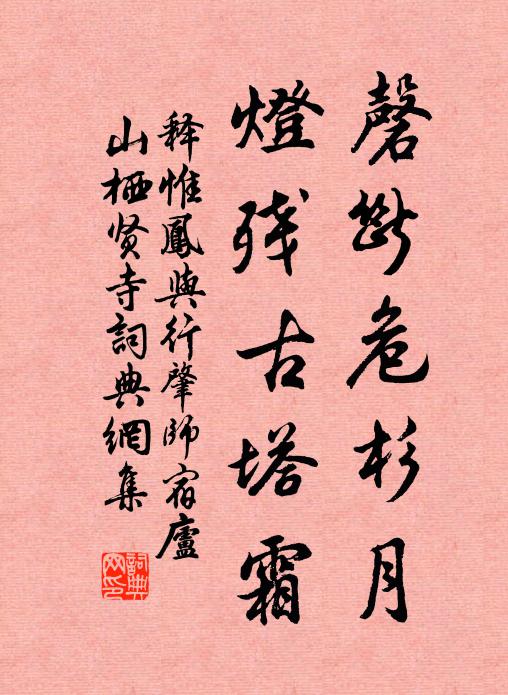 磬断危杉月
燈残古塔霜
释惟鳳與行肇師宿廬
山栖贤寺詞典網集
詞典
网印